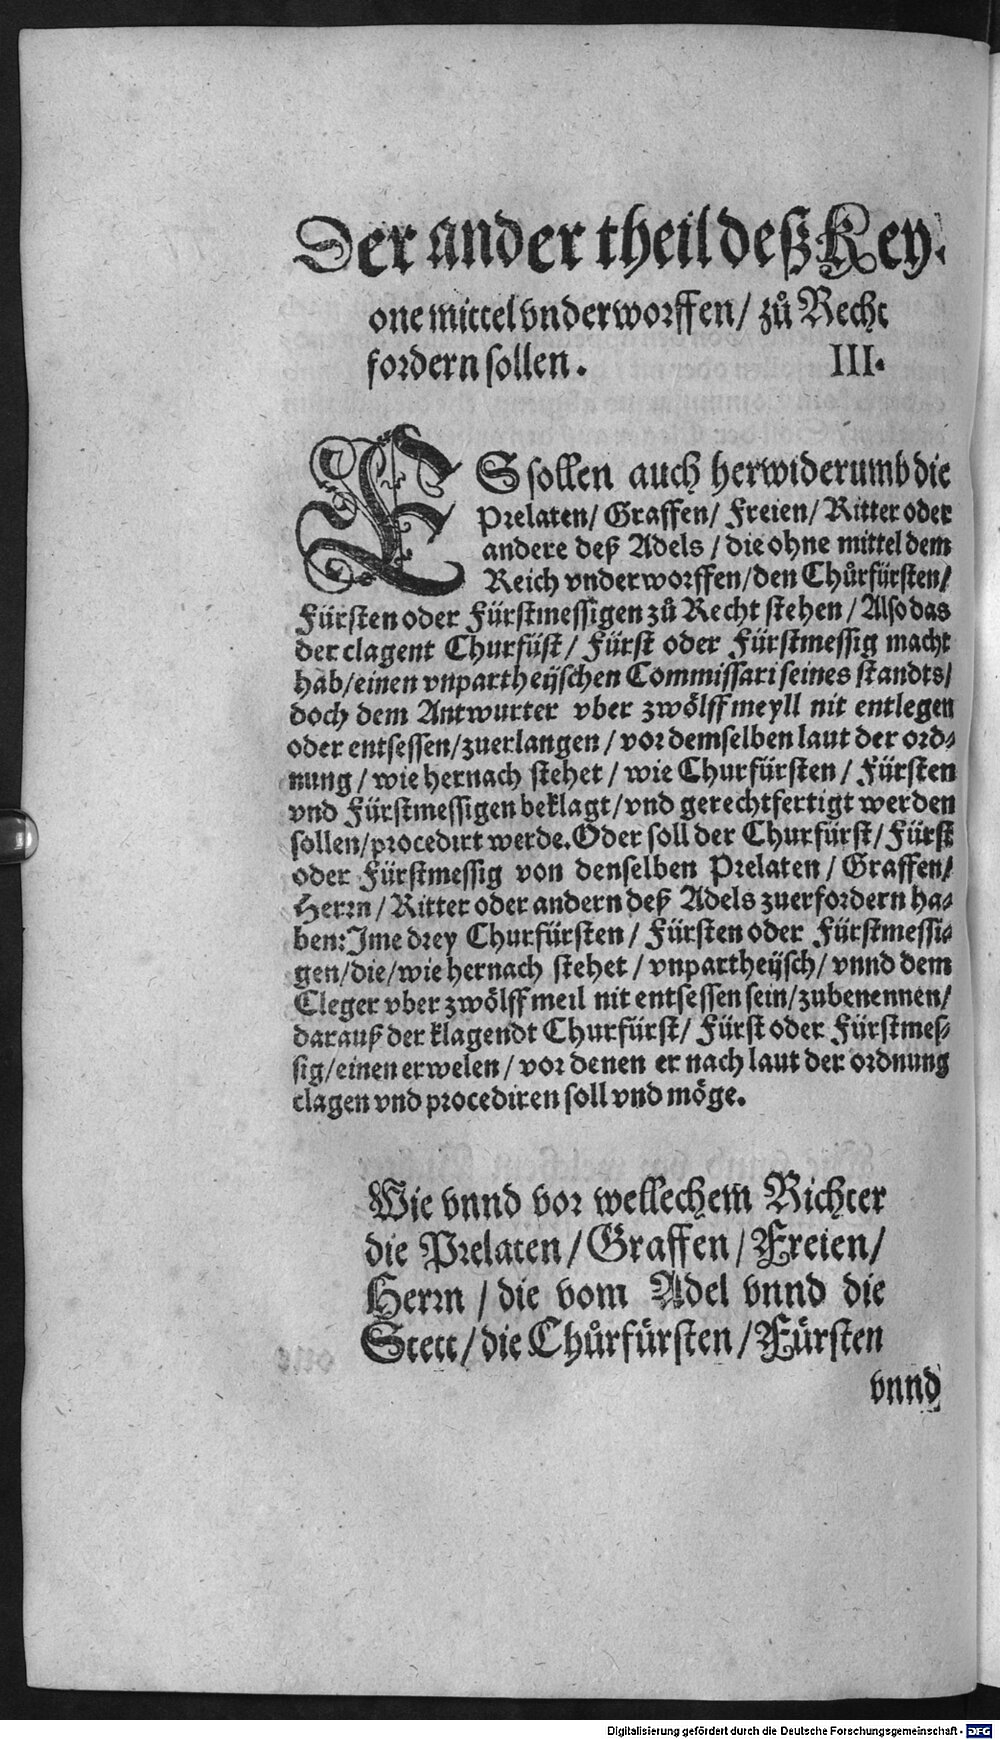 Der ander theil deß Key.
one mittel vnderworffen / zů Recht
fordern sollen. III.
ES sollen auch herwiderumb die
Prelaten / Graffen / Freien / Ritter oder
andere deß Adels / die ohne mittel dem
Reich vnderworffen / den Chůrfürsten /
Fürsten oder Fürstmessigen zů Recht stehen / Also das
der clagent Churfüst / Fürst oder Fürstmessig macht
hab / einen vnpartheijschen Commissari seines standts /
doch dem Antwurter vber zwölff meyll nit entlegen
oder entsessen / zuerlangen / vor demselben laut der ord-
nung / wie hernach stehet / wie Churfürsten / Fürsten
vnd Fürstmessigen beklagt / vnd gerechtfertigt werden
sollen / procedirt werde. Oder soll der Churfürst / Fürst
oder Fürstmessig von denselben Prelaten / Graffen /
Herrn / Ritter oder andern deß Adels zuerfordern ha-
ben: Ime drey Churfürsten / Fürsten oder Fürstmessi-
gen / die / wie hernach stehet / vnpartheijsch / vnnd dem
Cleger vber zwölff meil nit entsessen sein / zubenennen /
darauß der klagendt Churfürst / Fürst oder Fürstmes-
sig / einen erwelen / vor denen er nach laut der ordnung
clagen vnd procediren soll vnd möge.
Wie vnnd vor wellechem Richter
die Prelaten / Graffen / Freien /
Herrn / die vom Adel vnnd die
Stett / die Chůrfürsten / Fürsten
vnnd
Digitalisierung gefördert durch die Deutsche Forschungsgemeinschaft - DFG